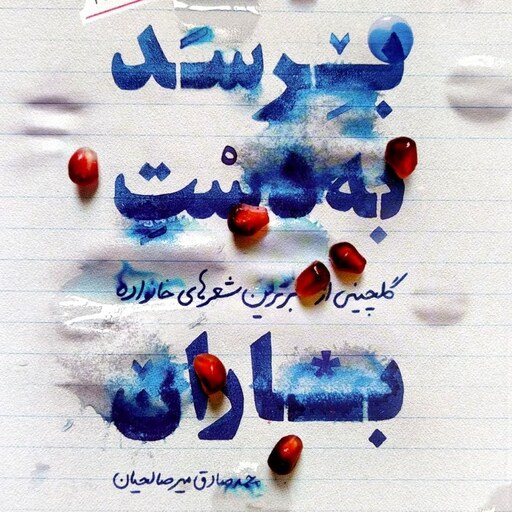 بِرسَد
به دَسْتِ
گلچینی از برترین شعرهای خانواده
باران
محمدصادق میرصالحیان